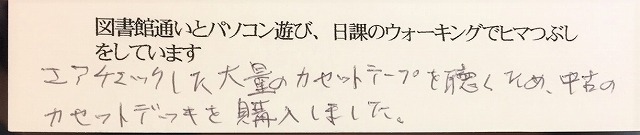 図書館通いとパソコン遊び、日課のウォーキングでヒマつぶし
をしています
エアチェックした大量のカセットテープを聴くため、中古の
カセットデッキを購入しました。